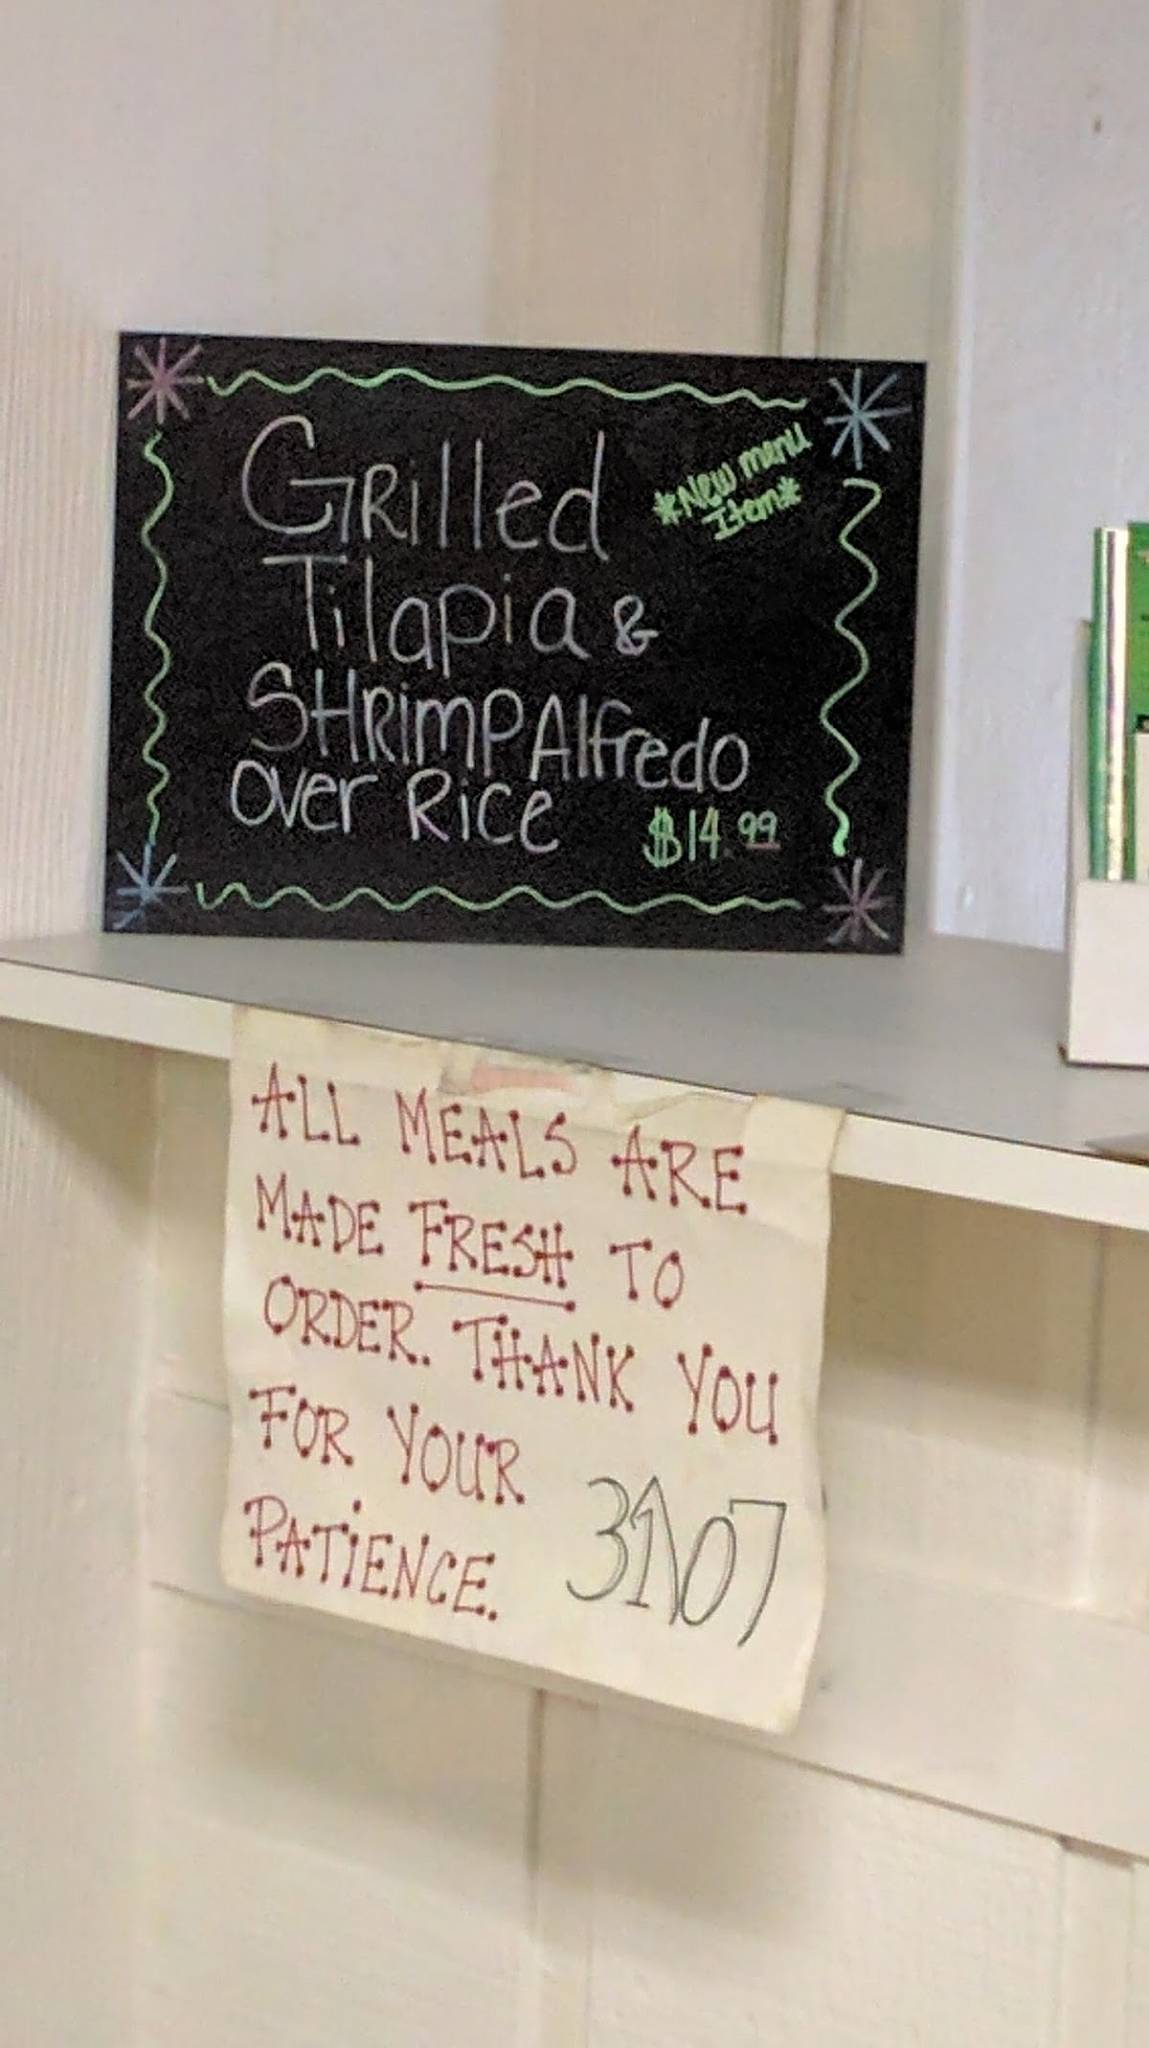 Grilled
*New menu
Item*
Tilapia &
SHRimp Alfredo
over Rice
$14.99
ALL MEALS ARE
MADE FRESH TO
ORDER. THANK YOU
FOR YOUR
PATiENCE.
3107